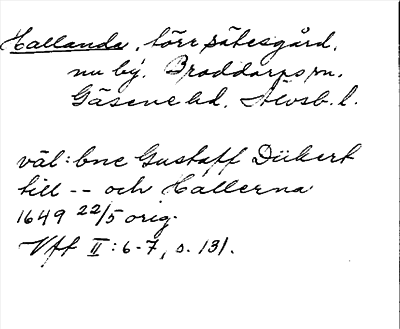 Hallanda, förr sätesgård,
nu by. Broddarps sn.
Gäsene hd. Älvsb. l.
väl: bne Gustaff Dükert
till -- och Hallerna
1649 22/5 orig.
Vff II: 6-7, s. 131.